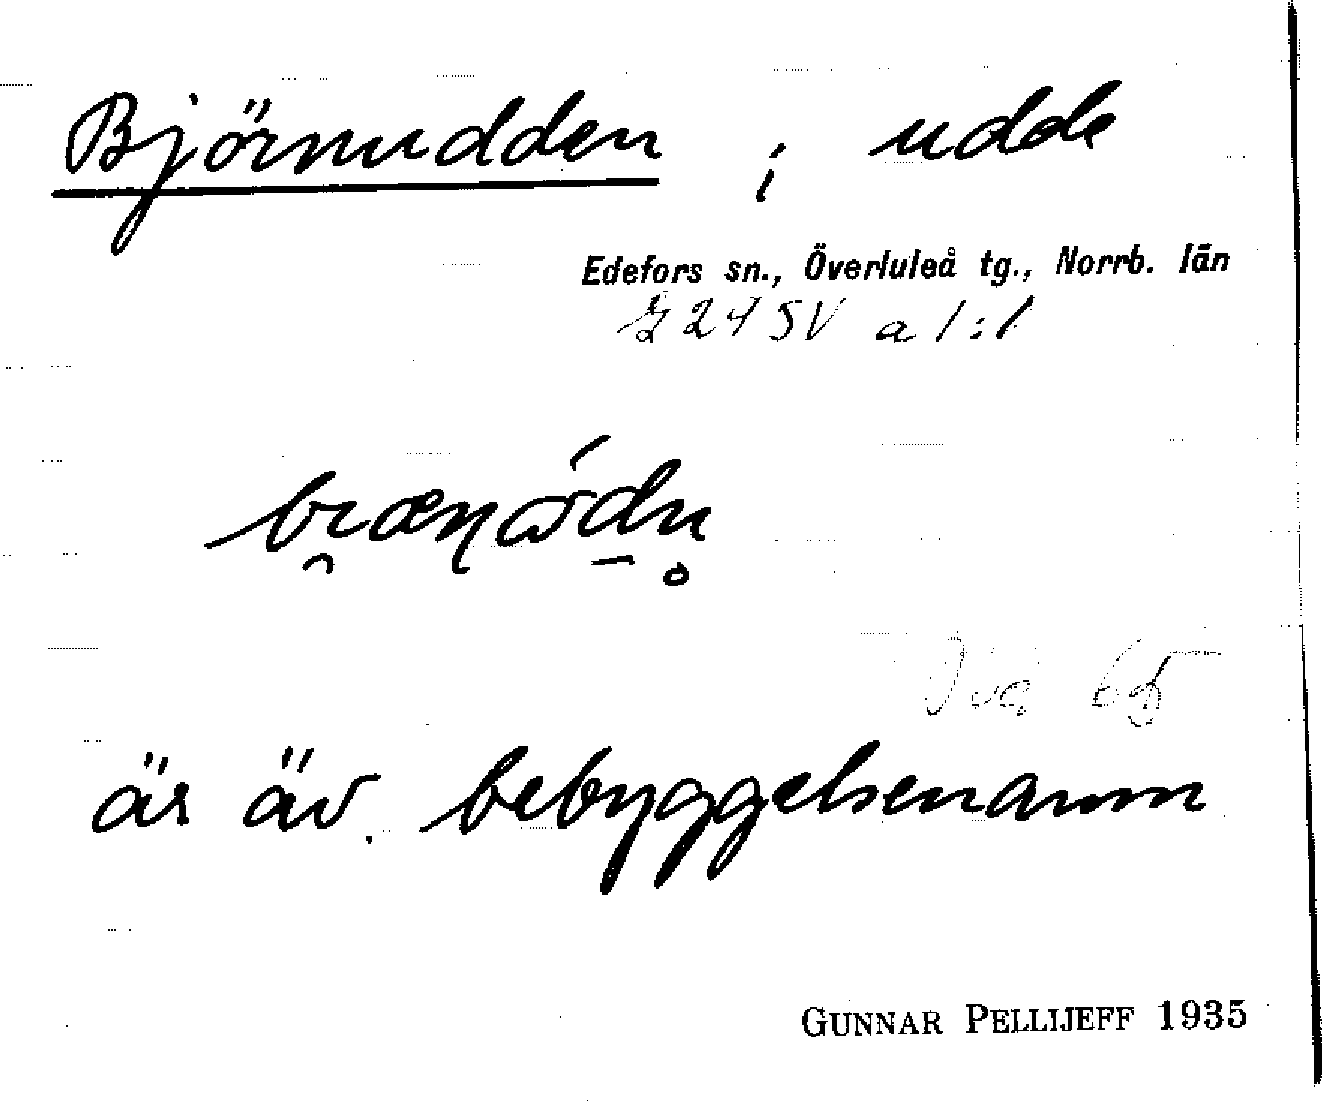 Björnudden ; udde
Edefors sn., Överluleå tg., Norrb. län
24 SV a 1:1
är äv. bebyggelsenamn
GUNNAR PELLIJEFF 1935